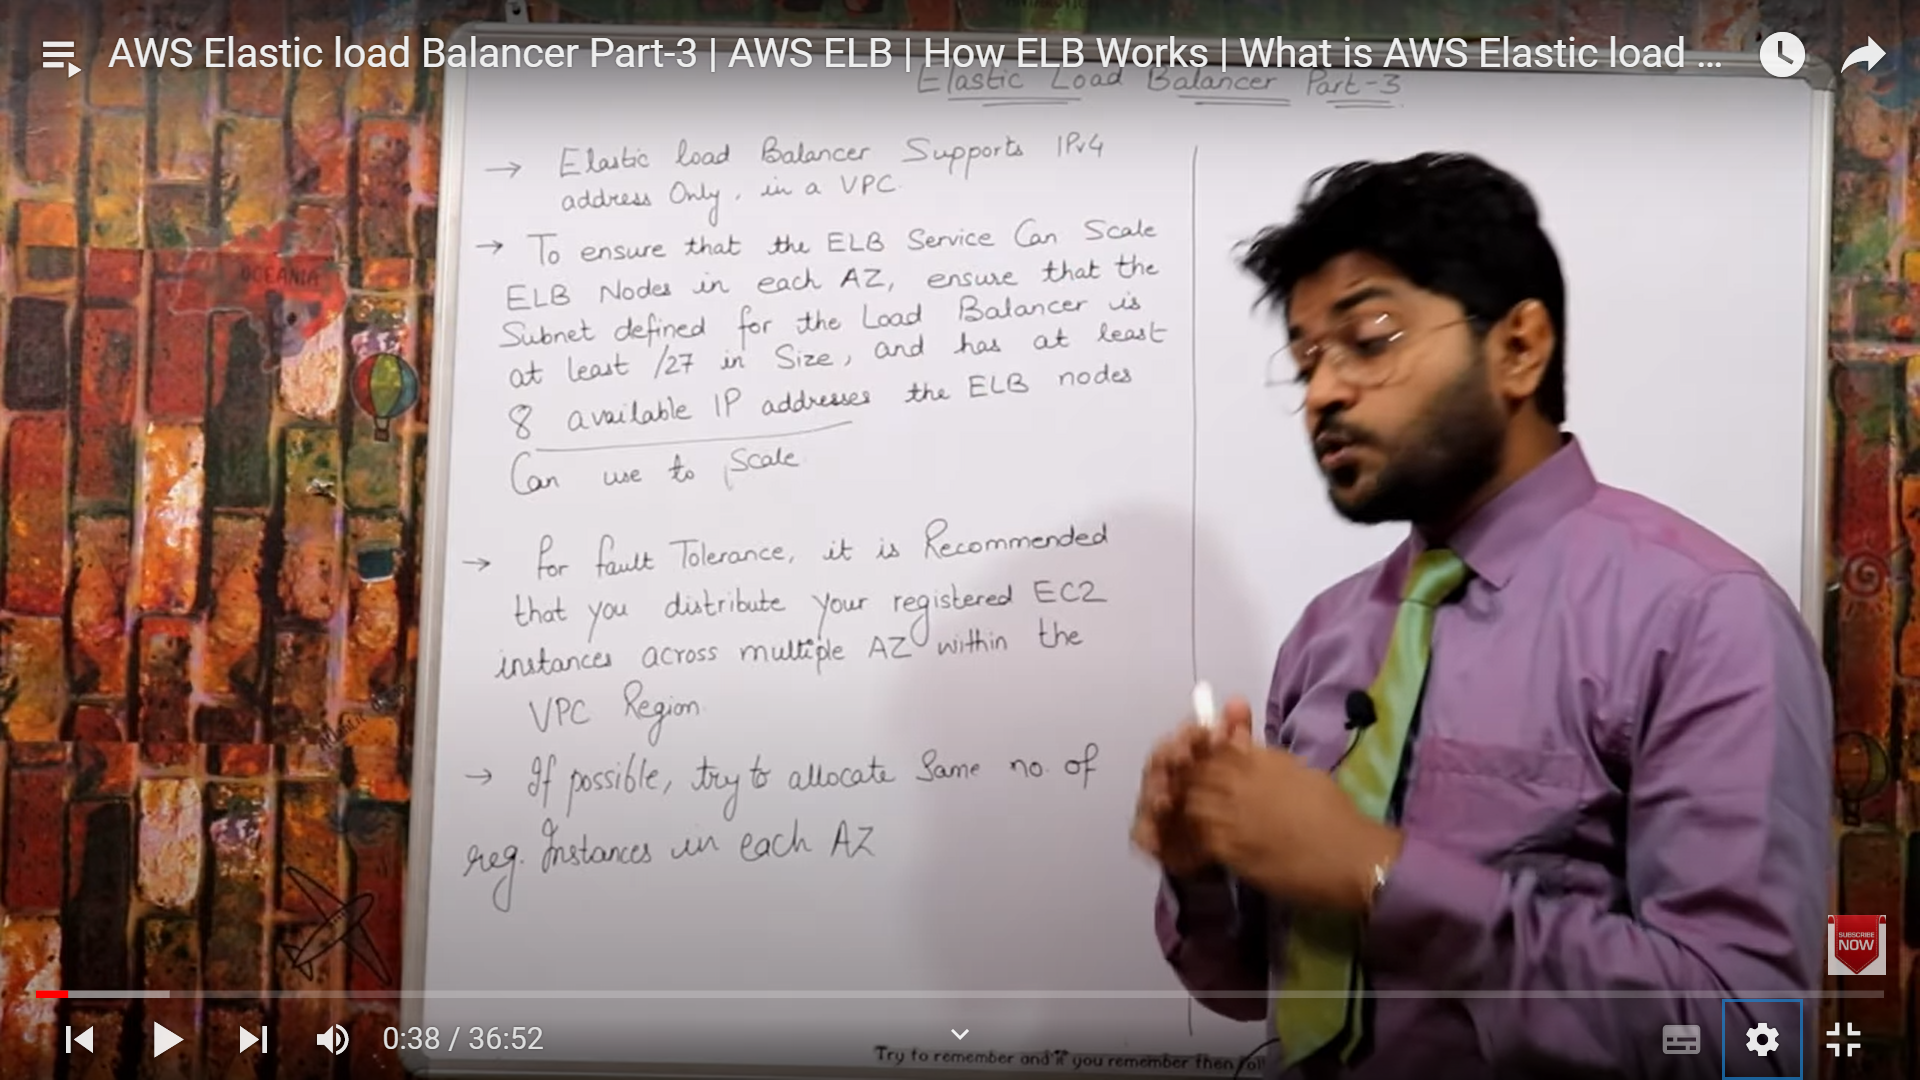 AWS Elastic load Balancer Part-3 | AWS ELB | How ELB Works | What is AWS Elastic load ...
Elastic Load Balancer Part-3
→ Elastic load Balancer Supports IPv4
address Only, in a VPC.
→ To ensure that the ELB Service Can Scale
ELB Nodes in each AZ, ensure that the
Subnet defined for the Load Balancer is
at least /27 in Size, and has at least
8 available IP addresses the ELB nodes
Can use to Scale
→ For fault Tolerance, it is Recommended
that you distribute your registered EC2
instances across multiple AZ within the
VPC Region
→ If possible, try to allocate Same no. of
reg. Instances in each AZ
OCEANIA
SUBSCRIBE
NOW
0:38 / 36:52
Try to remember and if you remember then